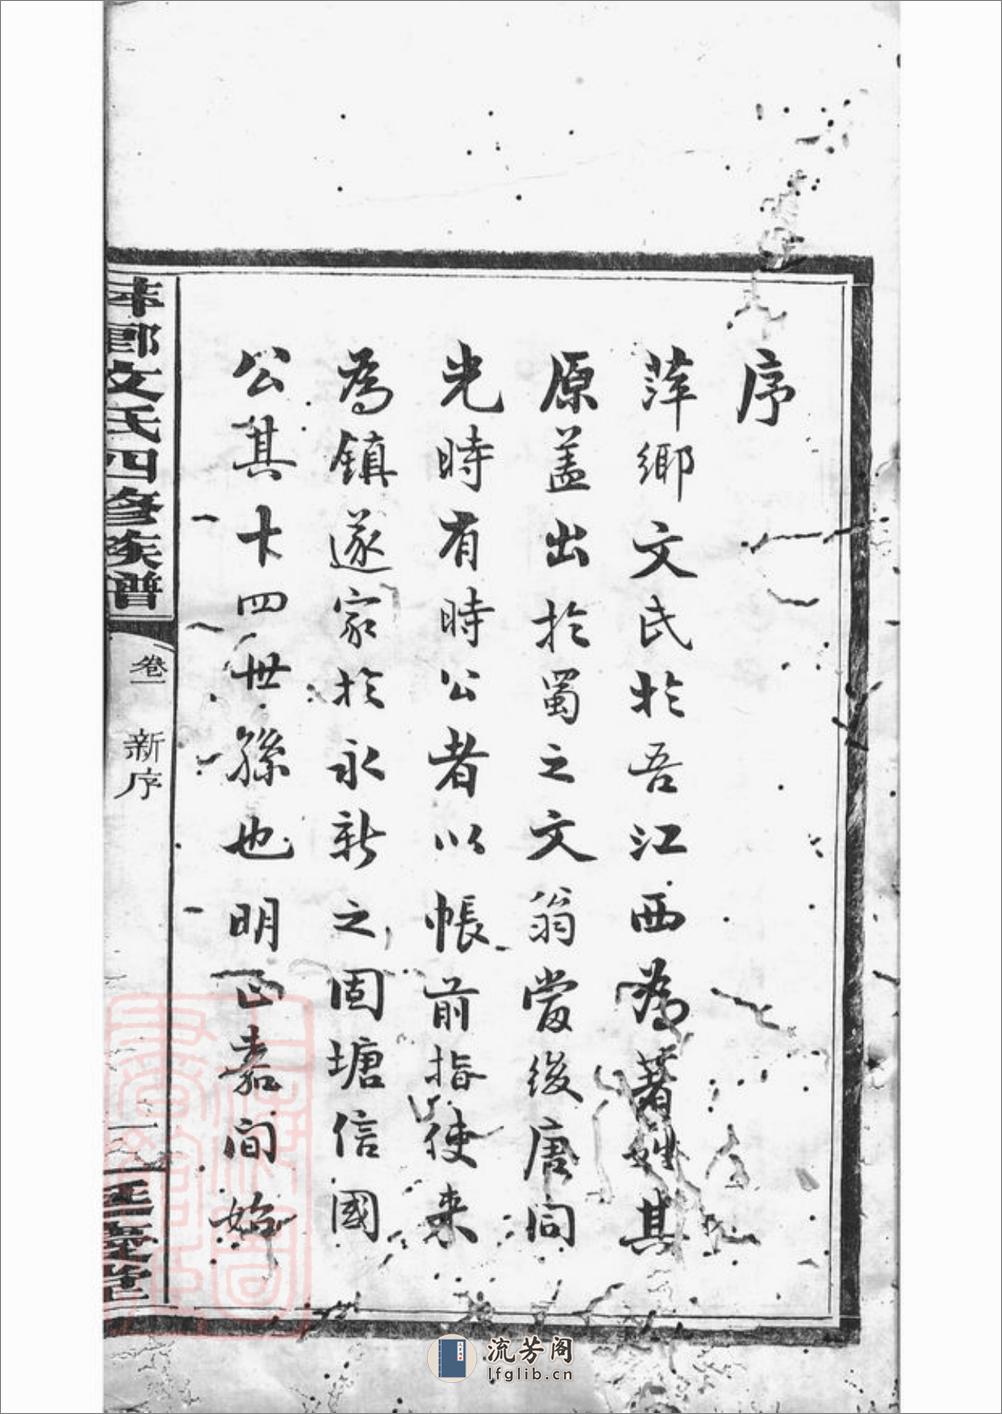 序
萍鄉文氏於吾江西為著姓其
原盖出於蜀之文翁當後唐同
光時有時公者以帳前指使来
為鎮遂家於永新之固塘信國
公其十四世孫也明正嘉間始
文氏四修族譜
卷一
新序
一
堂
流芳阁
lfglib.cn